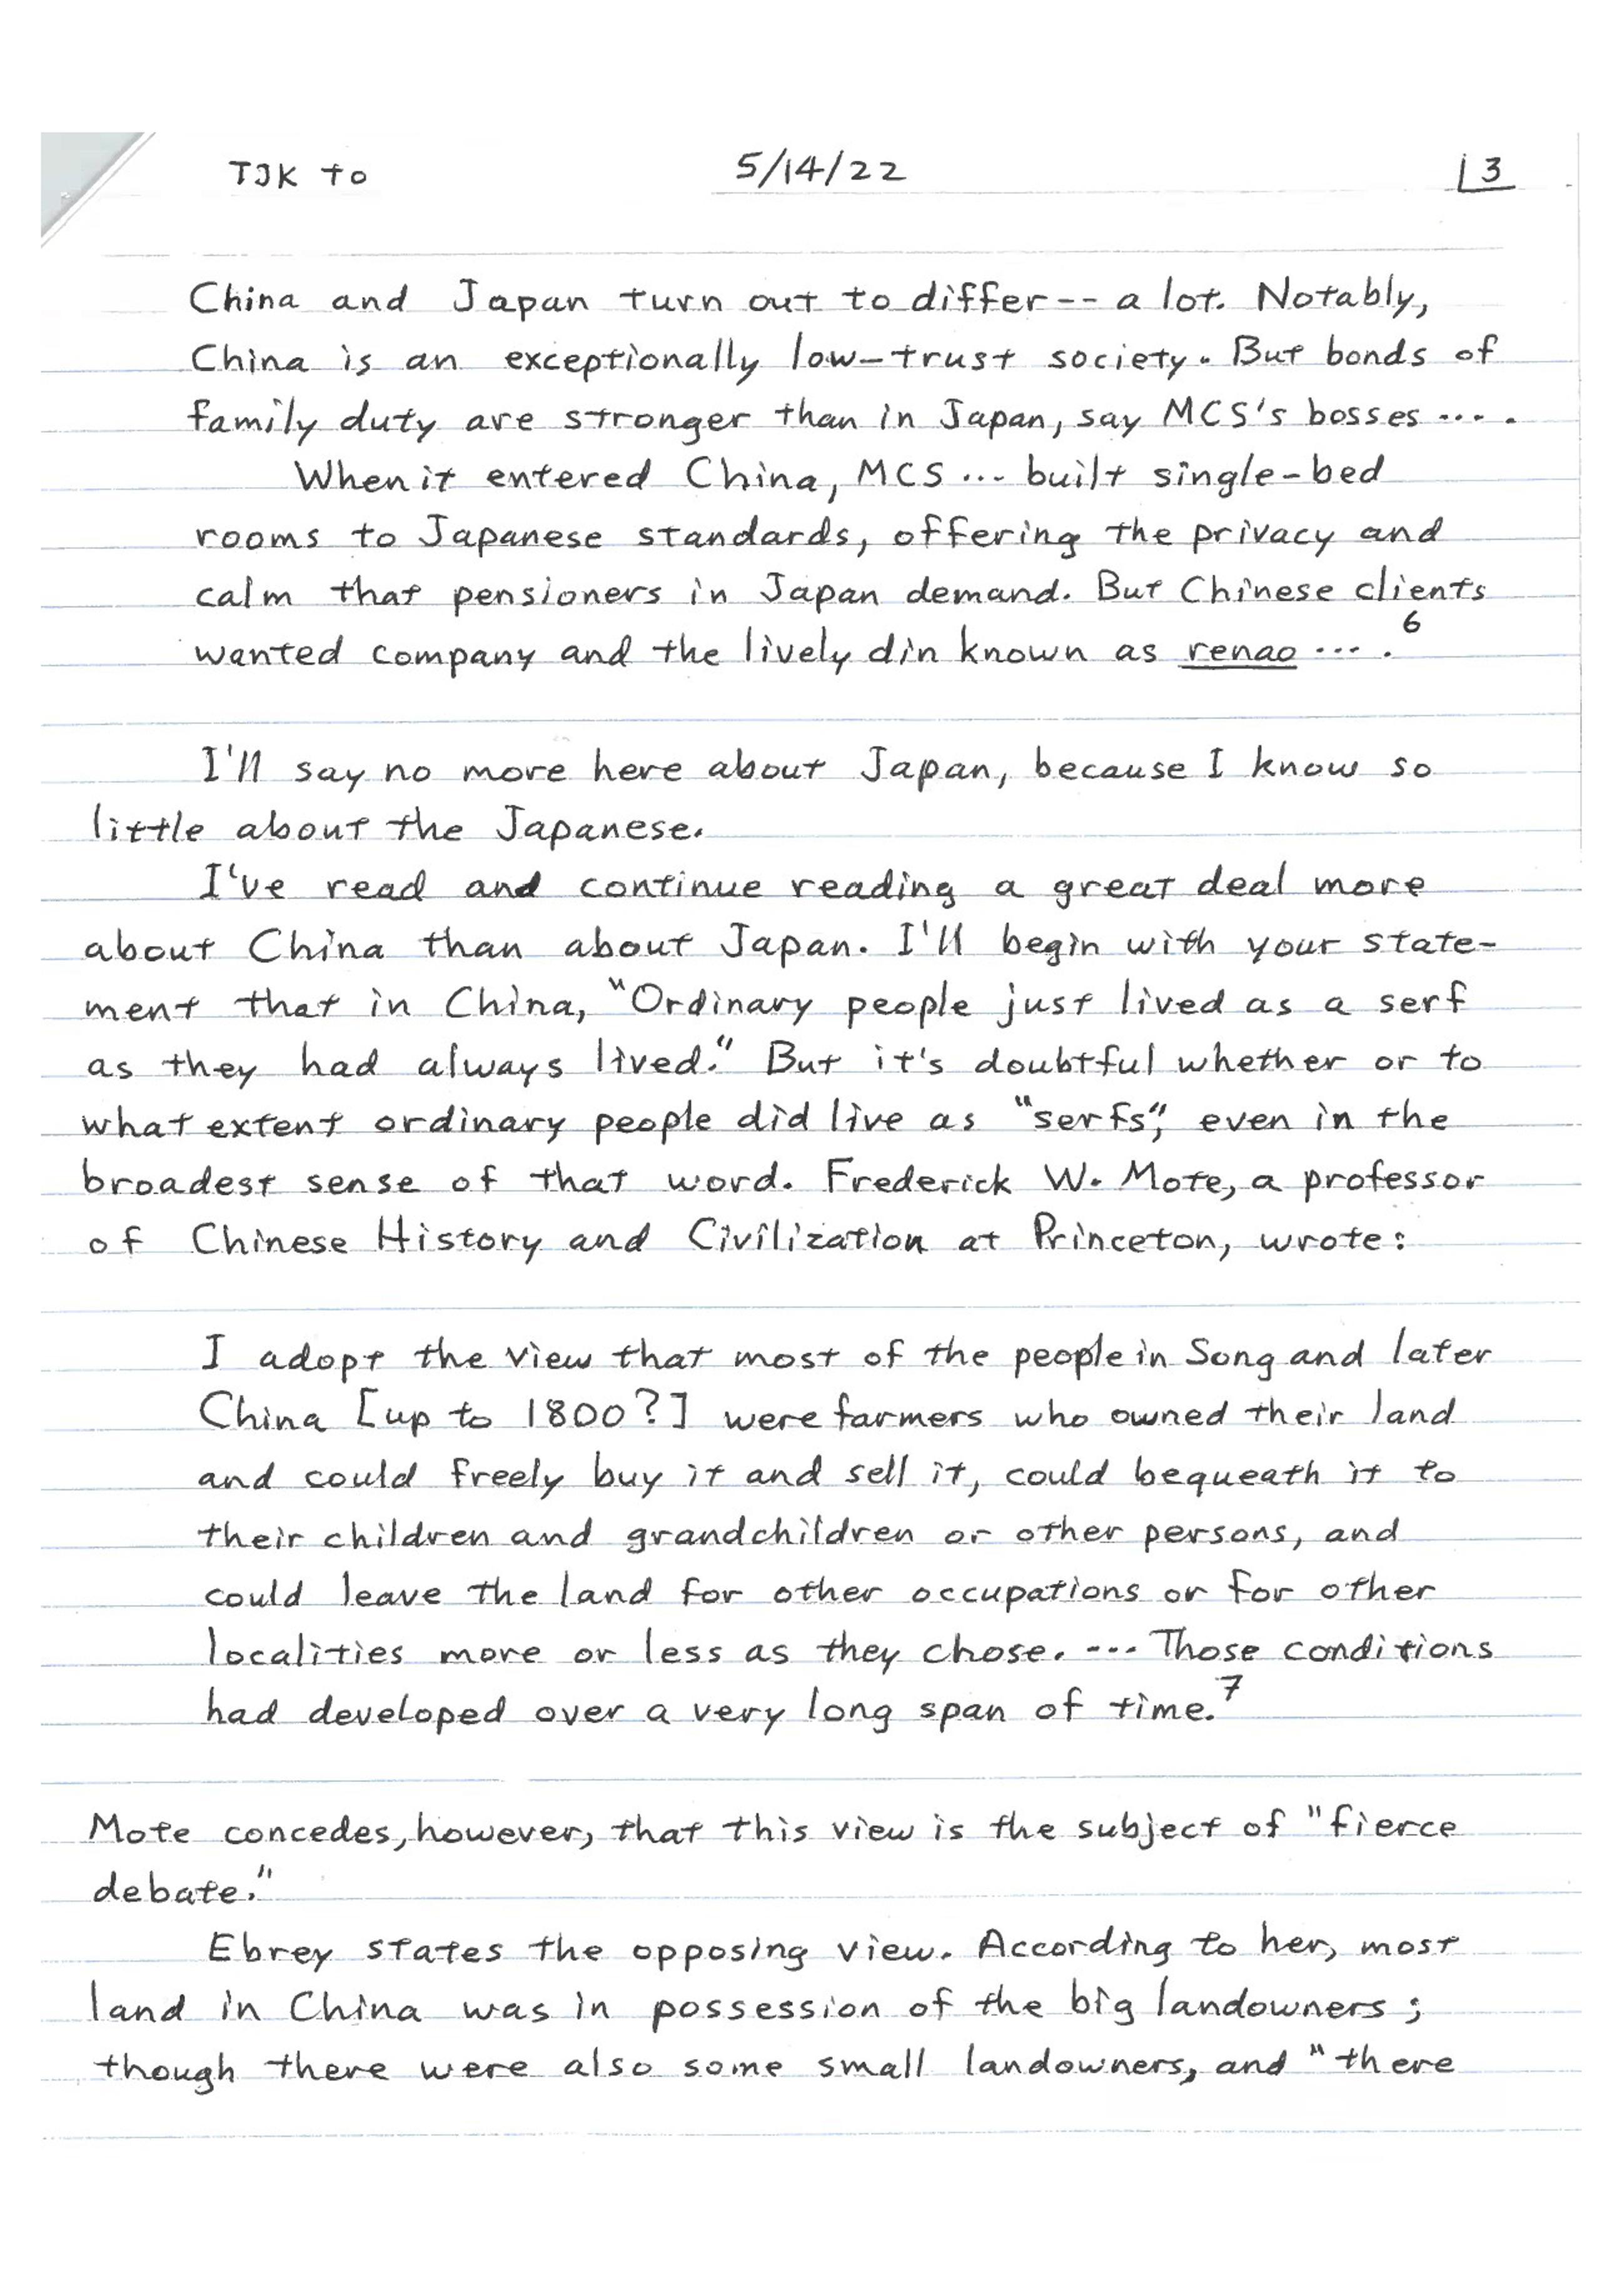 TJK to 5/14/22 3
China and Japan turn out to differ -- a lot. Notably,
China is an exceptionally low-trust society. But bonds of
family duty are stronger than in Japan, say MCS's bosses ... .
When it entered China, MCS ... built single-bed
rooms to Japanese standards, offering the privacy and
calm that pensioners in Japan demand. But Chinese clients
wanted company and the lively din known as renao ... .6
I'll say no more here about Japan, because I know so
little about the Japanese.
I've read and continue reading a great deal more
about China than about Japan. I'll begin with your state-
ment that in China, "Ordinary people just lived as a serf
as they had always lived." But it's doubtful whether or to
what extent ordinary people did live as "serfs", even in the
broadest sense of that word. Frederick W. Mote, a professor
of Chinese History and Civilization at Princeton, wrote:
I adopt the view that most of the people in Song and later
China [up to 1800?] were farmers who owned their land
and could freely buy it and sell it, could bequeath it to
their children and grandchildren or other persons, and
could leave the land for other occupations or for other
localities more or less as they chose. ... Those conditions
had developed over a very long span of time.7
Mote concedes, however, that this view is the subject of "fierce
debate."
Ebrey states the opposing view. According to her, most
land in China was in possession of the big landowners;
though there were also some small landowners, and "there